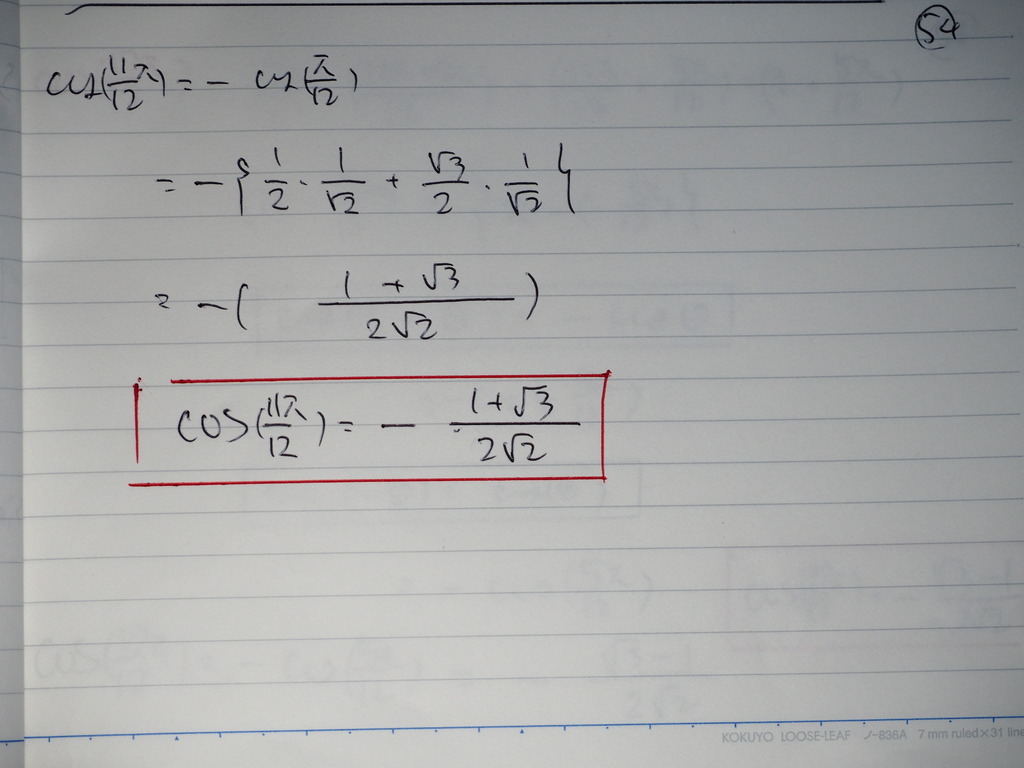 54
cos(11π/12) = - cos(π/12)
= -{ 1/2 · 1/√2 + √3/2 · 1/√2 }
= -( (1 + √3)/(2√2) )
cos(11π/12) = - (1+√3)/(2√2)
KOKUYO LOOSE-LEAF ノ-836A 7 mm ruled×31 line